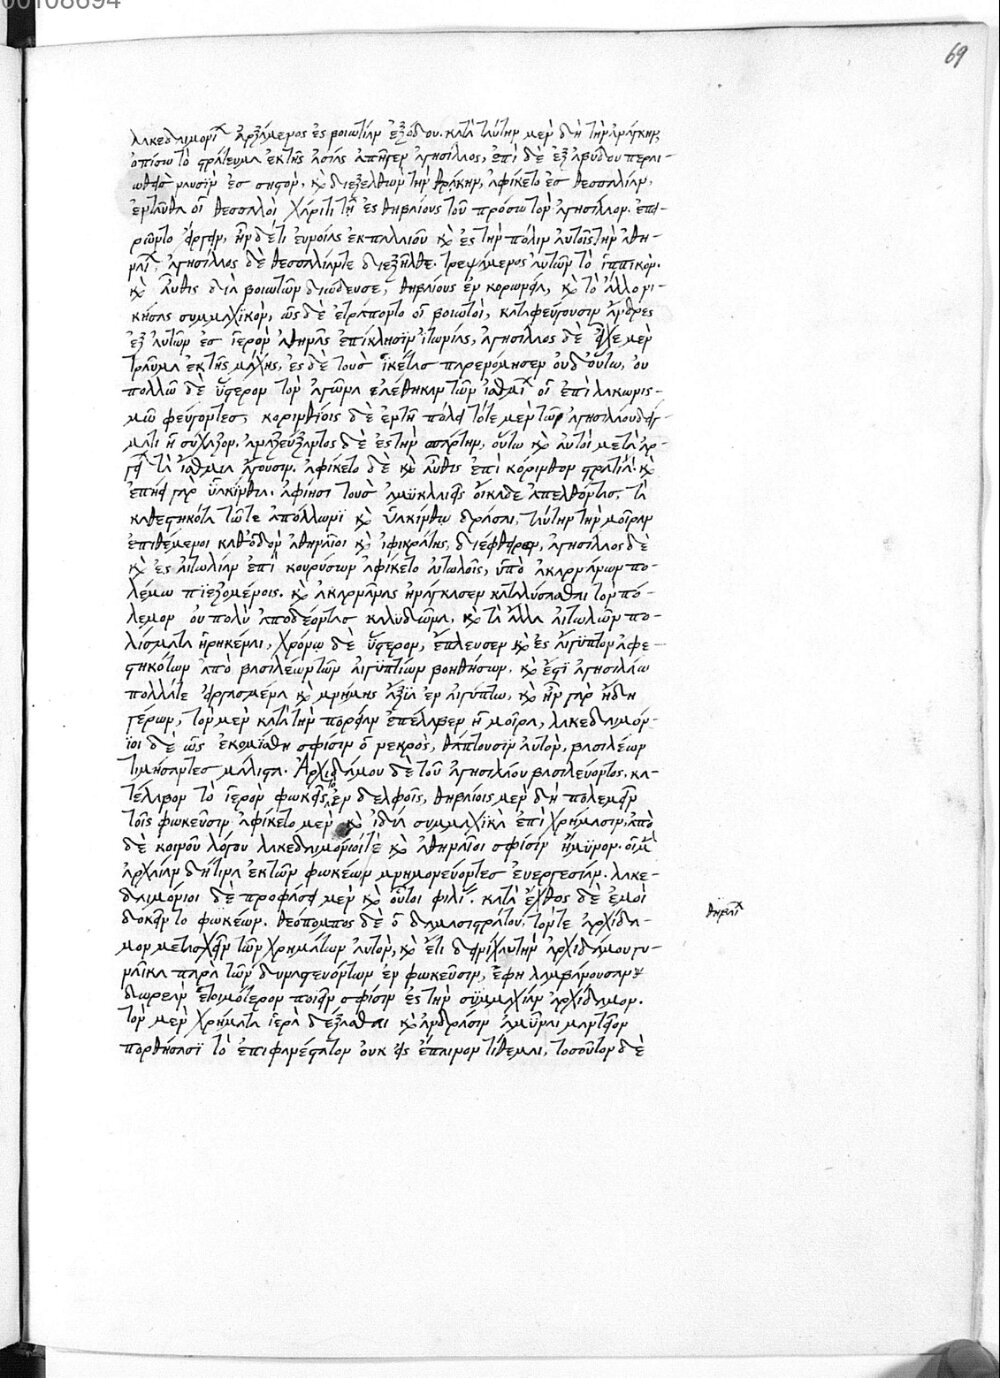 00108694
69
λακεδαιμονί ἀρξάμενος ἐς βοιωτίαν ἐξόδου. κατὰ ταύτην μὲν δὴ τὴν ἀνάγκην
ὀπίσω τὸ στράτευμα ἐκ τῆς ἀσίας ἀπῆγεν ἀγησίλαος, ἐπὶ δὲ ἐξ ἀβύδου περαι-
ωθεὶς ναυσὶν ἐς σηστὸν, καὶ διεξελθὼν τὴν θράκην, ἀφίκετο ἐς θεσσαλίαν,
ἐνταῦθα οἱ θεσσαλοὶ χάριτι τῇ ἐς θηβαίους τοῦ πρόσω τὸν ἀγησίλαον ἐπει-
ρῶντο εἴργειν, ἦν δέ τι εὐνοίας ἐκ παλαιοῦ καὶ ἐς τὴν πόλιν αὐτοῖς τὴν ἀθη-
ναί, ἀγησίλαος δὲ θεσσαλίαν τε διεξῆλθε, τρεψάμενος αὐτῶν τὸ ἱππικὸν.
καὶ αὖθις διὰ βοιωτῶν διώδευσε, θηβαίους ἐν κορωνείᾳ, καὶ τὸ ἄλλο νι-
κήσας συμμαχϊκὸν, ὡς δὲ ἐτράποντο οἱ βοιωτοὶ, καταφεύγουσιν ἄνδρες
ἐξ αὐτῶν ἐς ἱερὸν ἀθηνᾶς ἐπίκλησιν ἰτωνίας, ἀγησίλαος δὲ εἶχε μὲν
τραῦμα ἐκ τῆς μάχης, ἐς δὲ τοὺς ἱκέτας παρενόμησεν οὐδ' οὕτω, οὐ
πολλῷ δὲ ὕστερον τὸν ἀγῶνα ἐλέθηκαν τῶν ἰσθμί οἱ ἐπὶ λακωνισ-
μῷ φεύγοντες, κορινθίοις δὲ ἐν τῇ πόλει τότε μὲν τῷ ἀγησιλάου δεί-
ματι ἡσύχαζον, ἀναζεύξαντος δὲ ἐς τὴν σπάρτην, οὕτω καὶ αὐτοὶ μετὰ ἀρ-
γεί τὰ ἴσθμια ἄγουσιν. ἀφίκετο δὲ καὶ αὖθις ἐπὶ κόρινθον στρατιᾷ. καὶ
ἐπῄει γὰρ ὑακίνθια. ἀφίησι τοὺς ἀμϋκλαιεῖς οἴκαδε ἀπελθόντας, τὰ
καθεστηκότα τῷ τε ἀπόλλωνϊ καὶ ὑακίνθῳ δρᾶσαι, ταύτην τὴν μοῖραν
ἐπιθέμενοι καθ' ὁδὸν ἀθηναῖοι καὶ ἰφικράτης, διέφθειραν, ἀγησίλαος δὲ
καὶ ἐς αἰτωλίαν ἐπὶ κουρύσων ἀφίκετο αἰτωλοῖς, ὑπὸ ἀκαρνάνων πο-
λέμῳ πϊεζομένοις. καὶ ἀκαρνᾶνας ἠνάγκασεν καταλύσασθαι τὸν πό-
λεμον οὐ πολὺ ἀποδέοντας καλυδῶνα, καὶ τὰ ἄλλα αἰτωλῶν πο-
λίσματα ᾑρηκέναι, χρόνῳ δὲ ὕστερον, ἔπλευσεν καὶ ἐς αἴγϋπτον ἀφε-
στηκότων ἀπὸ βασιλέως τῶν αἰγϋπτίων βοηθήσων. καὶ ἔστϊ ἀγησιλάῳ
πολλά τε εἰργασμένα καὶ μνήμης ἄξϊα ἐν αἰγύπτῳ, καὶ ἦν γὰρ ἤδη
γέρων, τὸν μὲν κατὰ τὴν πορείαν ἐπέλαβεν ἡ μοῖρα, λακεδαιμόν-
ϊοι δὲ ὡς ἐκομΐσθη σφίσιν ὁ νεκρὸς, θάπτουσιν αὐτὸν, βασιλέων
τιμήσαντες μάλιστα. Ἀρχιδάμου δὲ τοῦ ἀγησιλάου βασιλεύοντος, κα-
τέλαβον τὸ ἱερὸν φωκεῖς τὸ ἐν δελφοῖς, θηβαίοις μὲν δὴ πολεμεῖν
τοῖς φωκεῦσιν ἀφίκετο μὲν καὶ ἰδίᾳ συμμαχϊκὰ ἐπὶ χρήμασιν, ἀπὸ
δὲ κοινοῦ λόγου λακεδαιμόνιοί τε καὶ ἀθηναῖοι σφίσιν ἤμϋνον. οἱ μὲν
ἀρχαίαν δή τινα ἐκ τῶν φωκέων μνημονεύοντες εὐεργεσίαν. λακε-
δαιμόνιοι δὲ προφάσει μὲν καὶ οὗτοι φιλί. κατὰ ἔχθος δὲ ἐμοὶ
δοκεῖν το φωκέων. θεόπομπος δὲ ὁ δαμασιστράτου, τόν τε ἀρχίδα-
μον μετασχεῖν τῶν χρημάτων αὐτὸν, καὶ ἔτι δεινίχαν τὴν ἀρχιδάμου γυ-
ναῖκα παρὰ τῶν δυναστευόντων ἐν φωκεῦσιν, ἔφη λαμβάνουσαν
δωρεὰν ἑτοιμότερον ποιεῖν σφίσιν ἐς τὴν σϋμμαχίαν ἀρχίδαμον.
τὸν μὲν χρήματα ἱερὰ δέξασθαι καὶ ἀνδράσιν ἀμῦναι μαντεῖον
πορθήσασϊ τὸ ἐπιφανέστατον οὐκ εἰς ἔπαινον τίθεμαι, τοσοῦτον δὲ
θηβαί